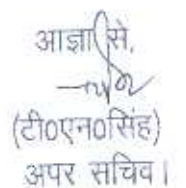 आज्ञा से,
(टी0एन0सिंह)
अपर सचिव।